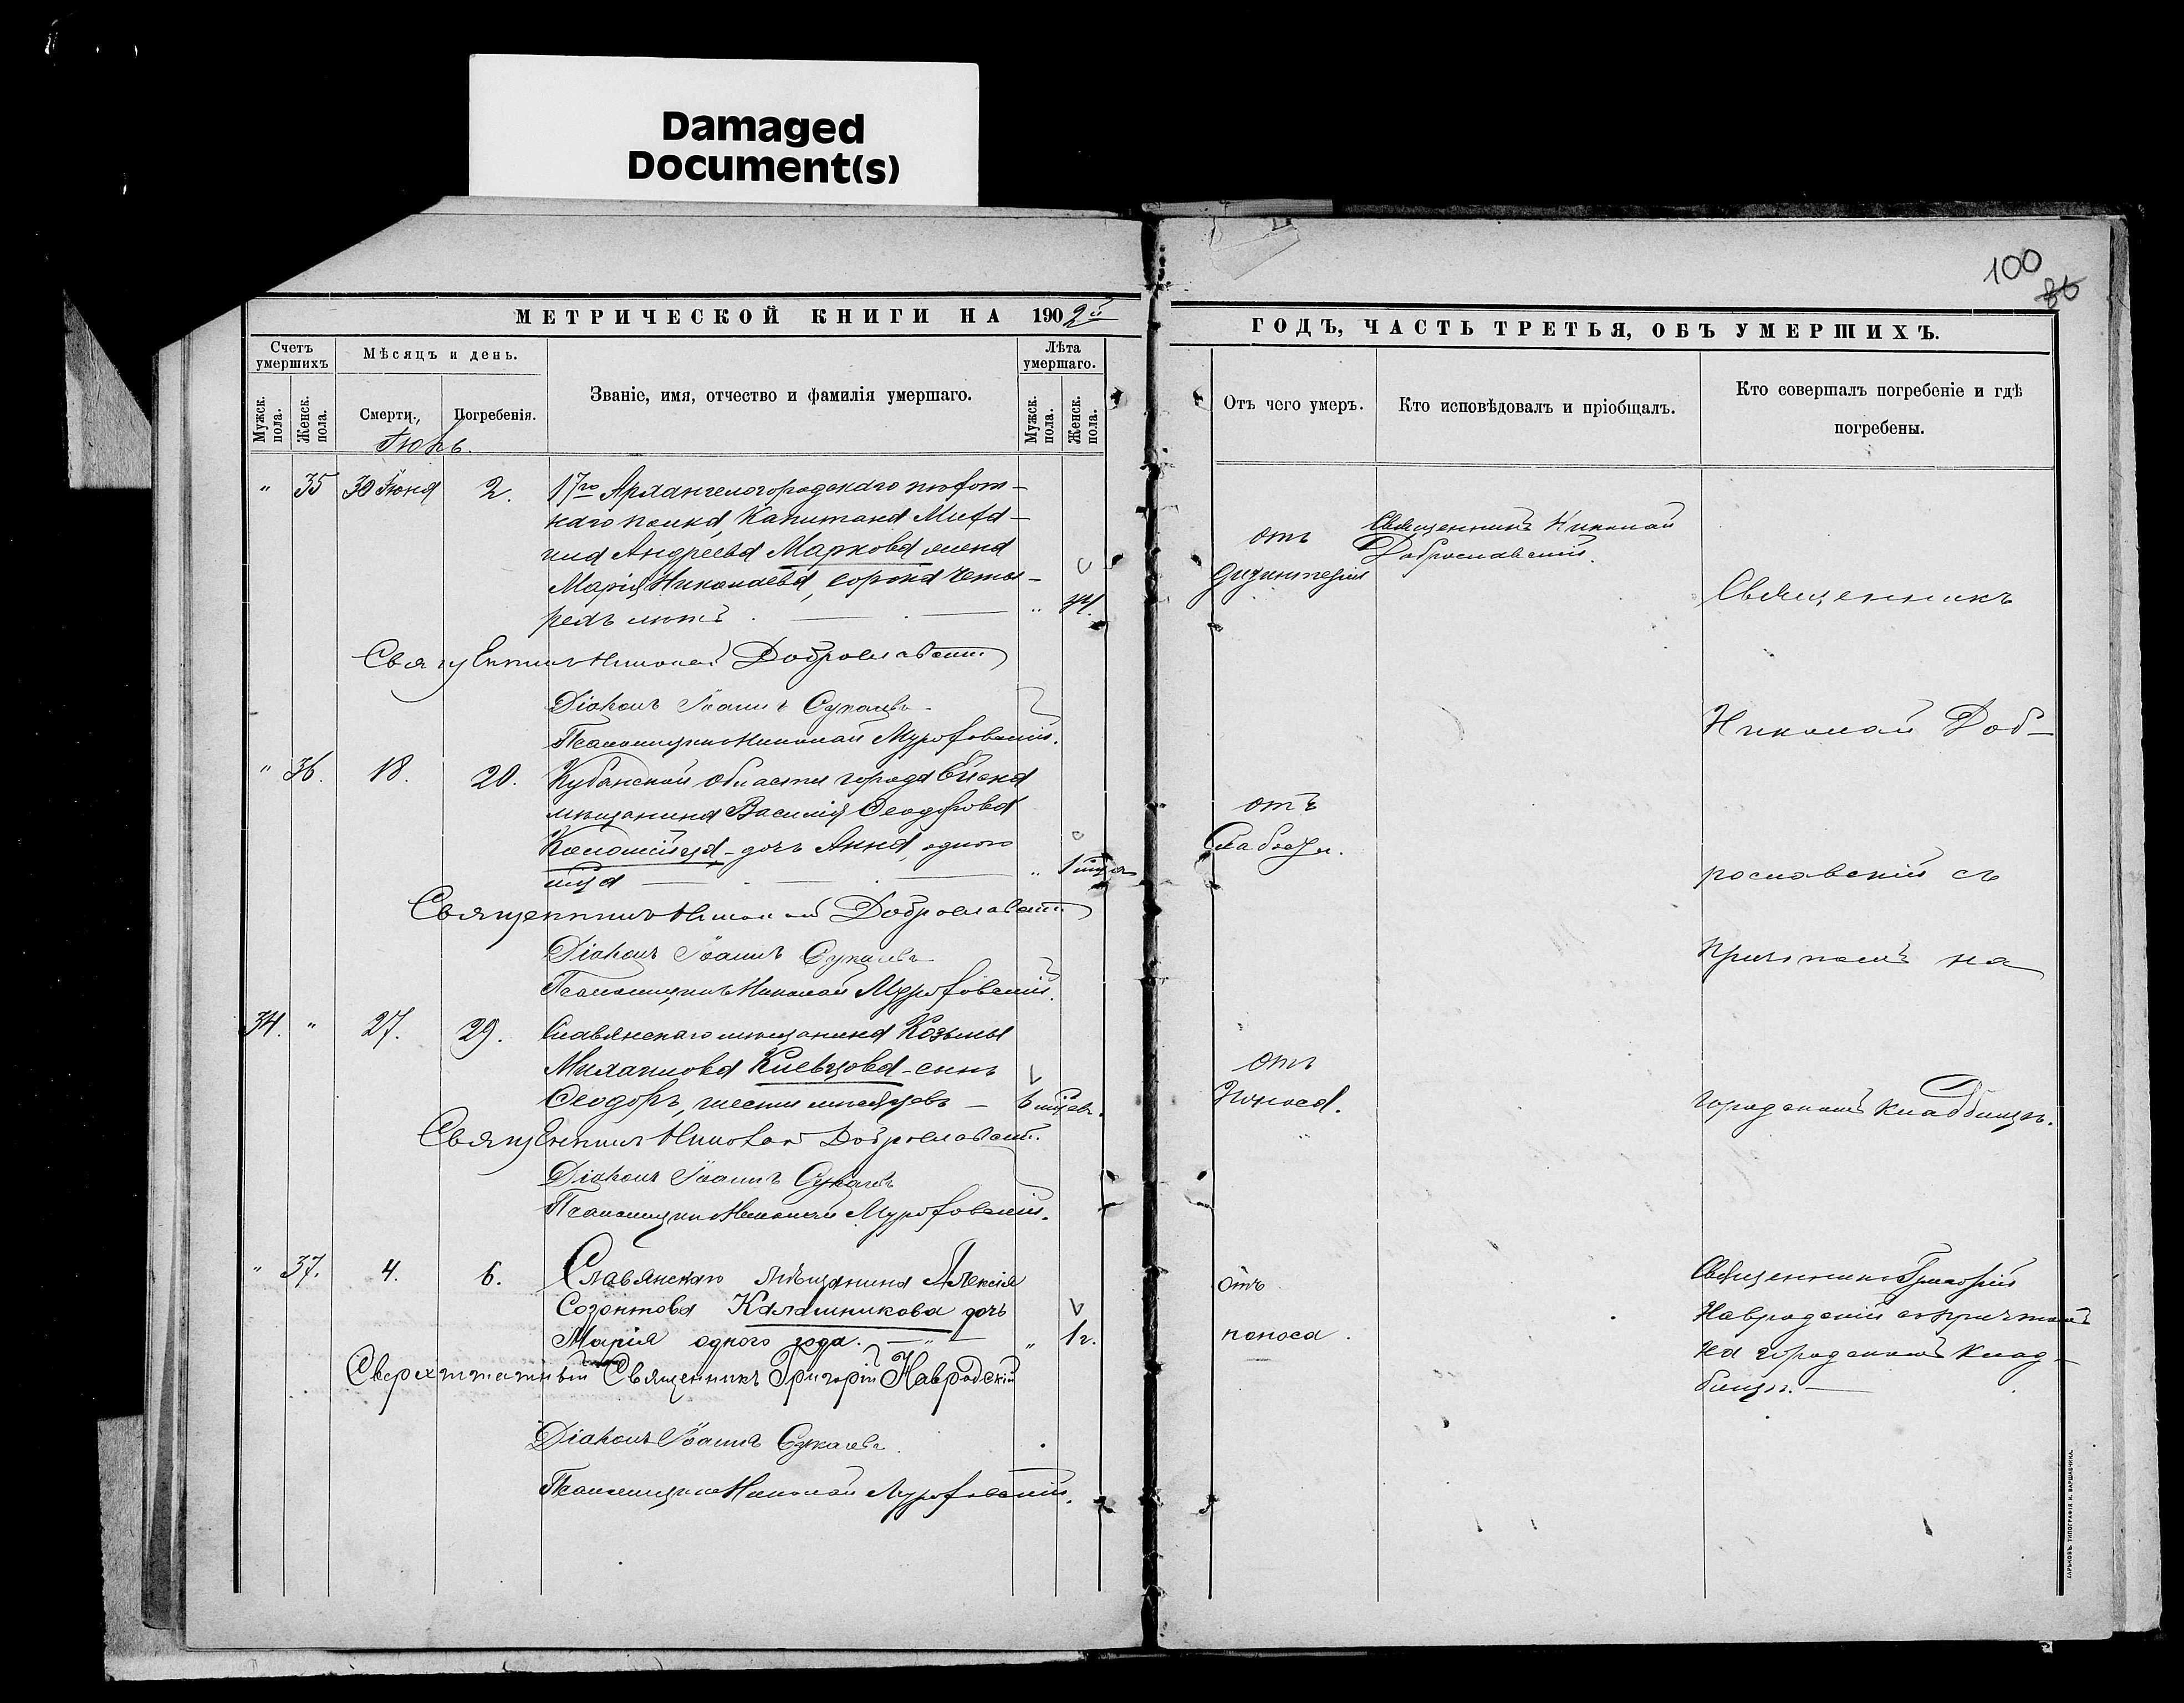 Damaged
Document(s)
100
86
МЕТРИЧЕСКОЙ КНИГИ НА 1902й
ГОДЪ, ЧАСТЬ ТРЕТЬЯ, ОБЪ УМЕРШИХЪ.
Счетъ умершихъ
Мужск. пола.
Женск. пола.
Мѣсяцъ и день.
Смерти.
Погребенія.
Званіе, имя, отчество и фамилія умершаго.
Лѣта умершаго.
Мужск. пола.
Женск. пола.
Отъ чего умеръ.
Кто исповѣдовалъ и пріобщалъ.
Кто совершалъ погребеніе и гдѣ
погребены.
Іюль.
" 35 30 Іюня 2. 17го Архангелогородскаго пѣхот-
наго полка, Капитана Миха-
ила Андреева Маркова жена
Марія Николаева, сорока четы-
рехъ лѣтъ " 44.
отъ
дизинтеріи
Священникъ Николай
Доброславскій.
Священникъ Николай Доброславскій
Діаконъ Іоаннъ
Псаломщикъ Николай
" 36. 18. 20. Кубанской области города Ейска
мѣщанина Василія Ѳеодорова
Коломійца - дочь Анна, одного
мѣсяца "
отъ
Слабости.
Священникъ Николай Доброславскій
Діаконъ Іоаннъ
Псаломщикъ Николай
34. " 27. 29. Славянскаго мѣщанина Козьмы
Михаилова Киевцова - сынъ
Ѳеодоръ, шести мѣсяцевъ — 6 мѣсяц.
отъ
Поноса.
Священникъ Николай Доброславскій.
Діаконъ Іоаннъ
Псаломщикъ Николай
Священникъ
Николай Доб-
рославскій съ
причтомъ на
городскомъ кладбищѣ.
" 37. 4. 6. Славянскаго мѣщанина Алексія
Созонтова Калашникова дочь
Марія одного года. " 1 г.
отъ
поноса.
Священникъ Григорій
Навродскій съ причтомъ
на городскомъ клад-
бищѣ.
Сверхштатный Священникъ Григорій Навродскій
Діаконъ Іоаннъ
Псаломщикъ Николай
ХАРЬКОВЪ. ТИПОГРАФІЯ И. ВАРШАВЧИКА.